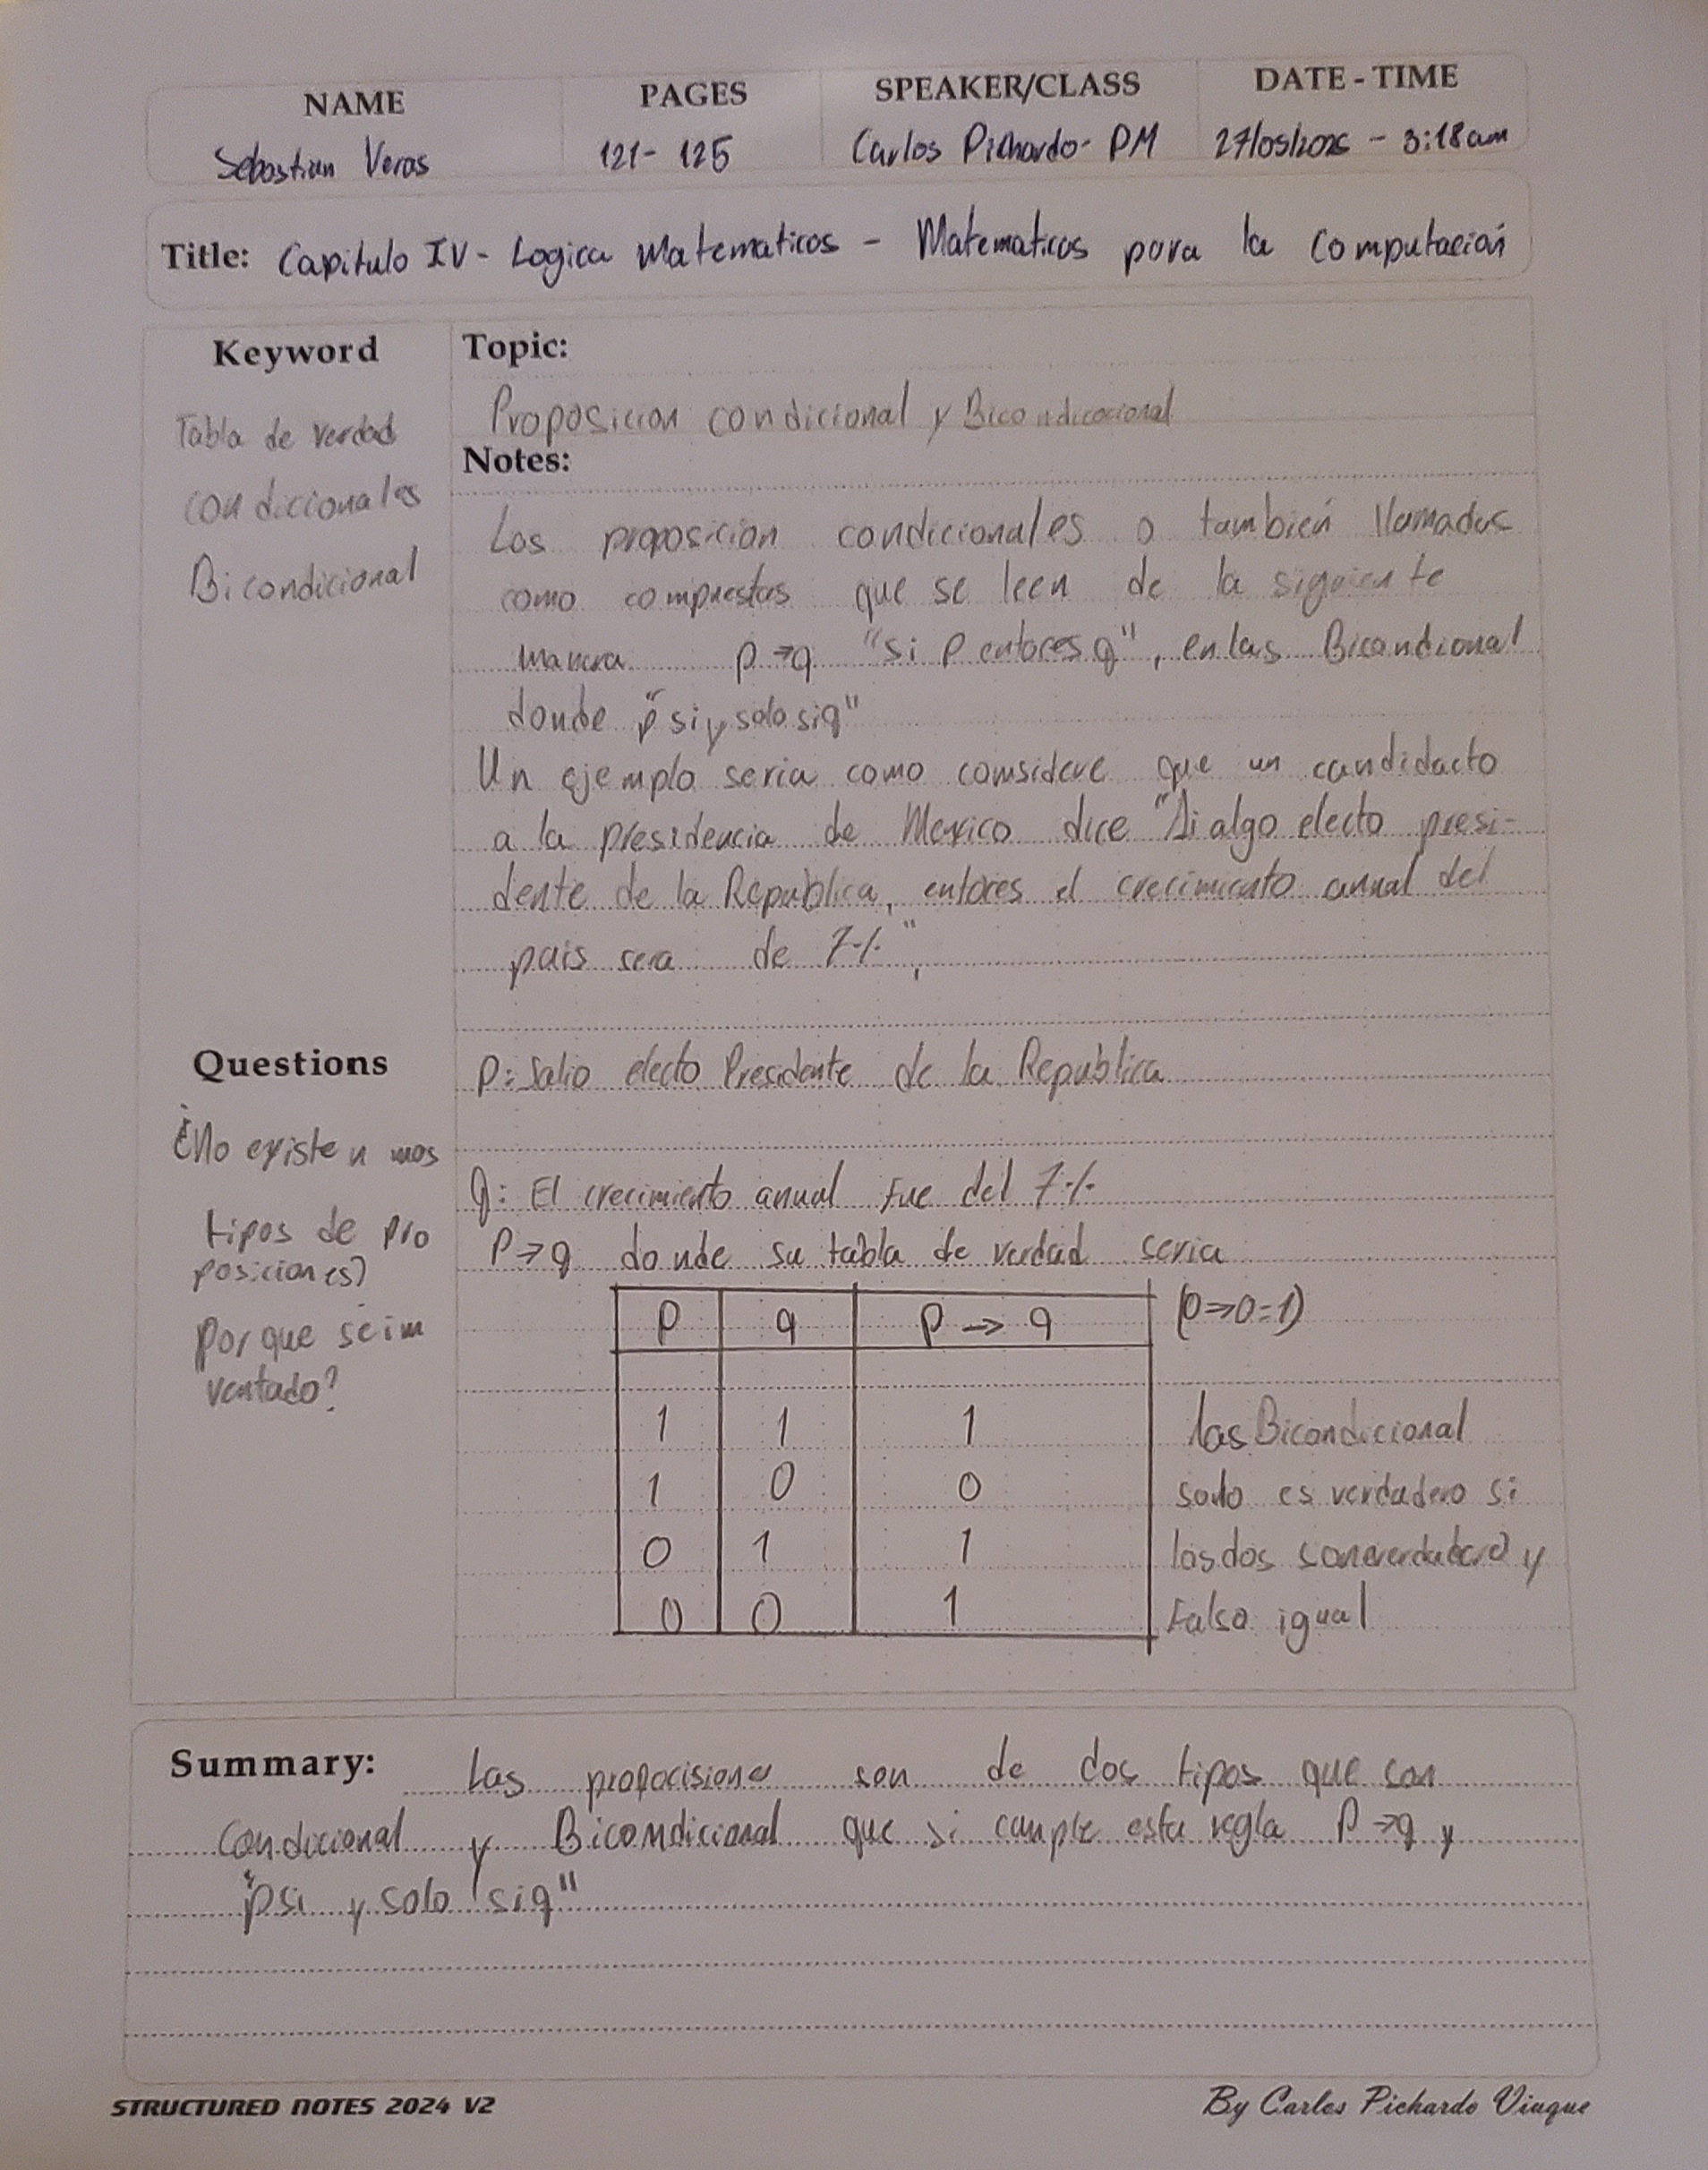 NAME PAGES SPEAKER/CLASS DATE - TIME
Sebastian Veras 121- 125 Carlos Pichardo- PM 27/05/2025 - 3:18am
Title: Capitulo IV - Logica Matematicas - Matematicas para la Computación
Keyword
Tabla de verdad
condiccionales
Bicondicional
Topic:
Proposicion condicional y
Notes:
Las proposicion condiccionales o tambien llamadas
como compuestas que se leen de la siguiente
manera p→q "si p entoces q", en las Bicondional
donde "p si y solo si q"
Un ejemplo seria como considere que un candidacto
a la presidencia de Mexico dice algo electo presi-
dente de la Republica, entoces el crecimiento anual del
pais sera de 7%",
Questions
¿No existen mas
tipos de pro
posiciones?
Por que se in
ventado?
P: Salio electo Presidente de la Republica
q: El crecimiento anual fue del 7%
P→q donde su tabla de verdad seria
P q P → q (0→0=1)
1 1 1
1 0 0
0 1 1
0 0 1
las Bicondicional
es verdadero si
los dos y
Falso igual
Summary: Las son de dos tipos que son
Condicional y Bicondicional que si cumple esta regla P→q y
"p si y solo si q"
STRUCTURED NOTES 2024 V2
By Carlos Pichardo Viuque